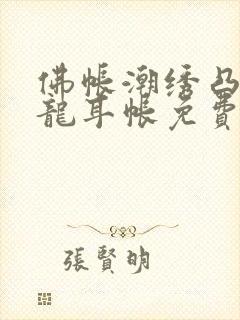 佛帳潮绣凸
龍耳帳免費
張賢明